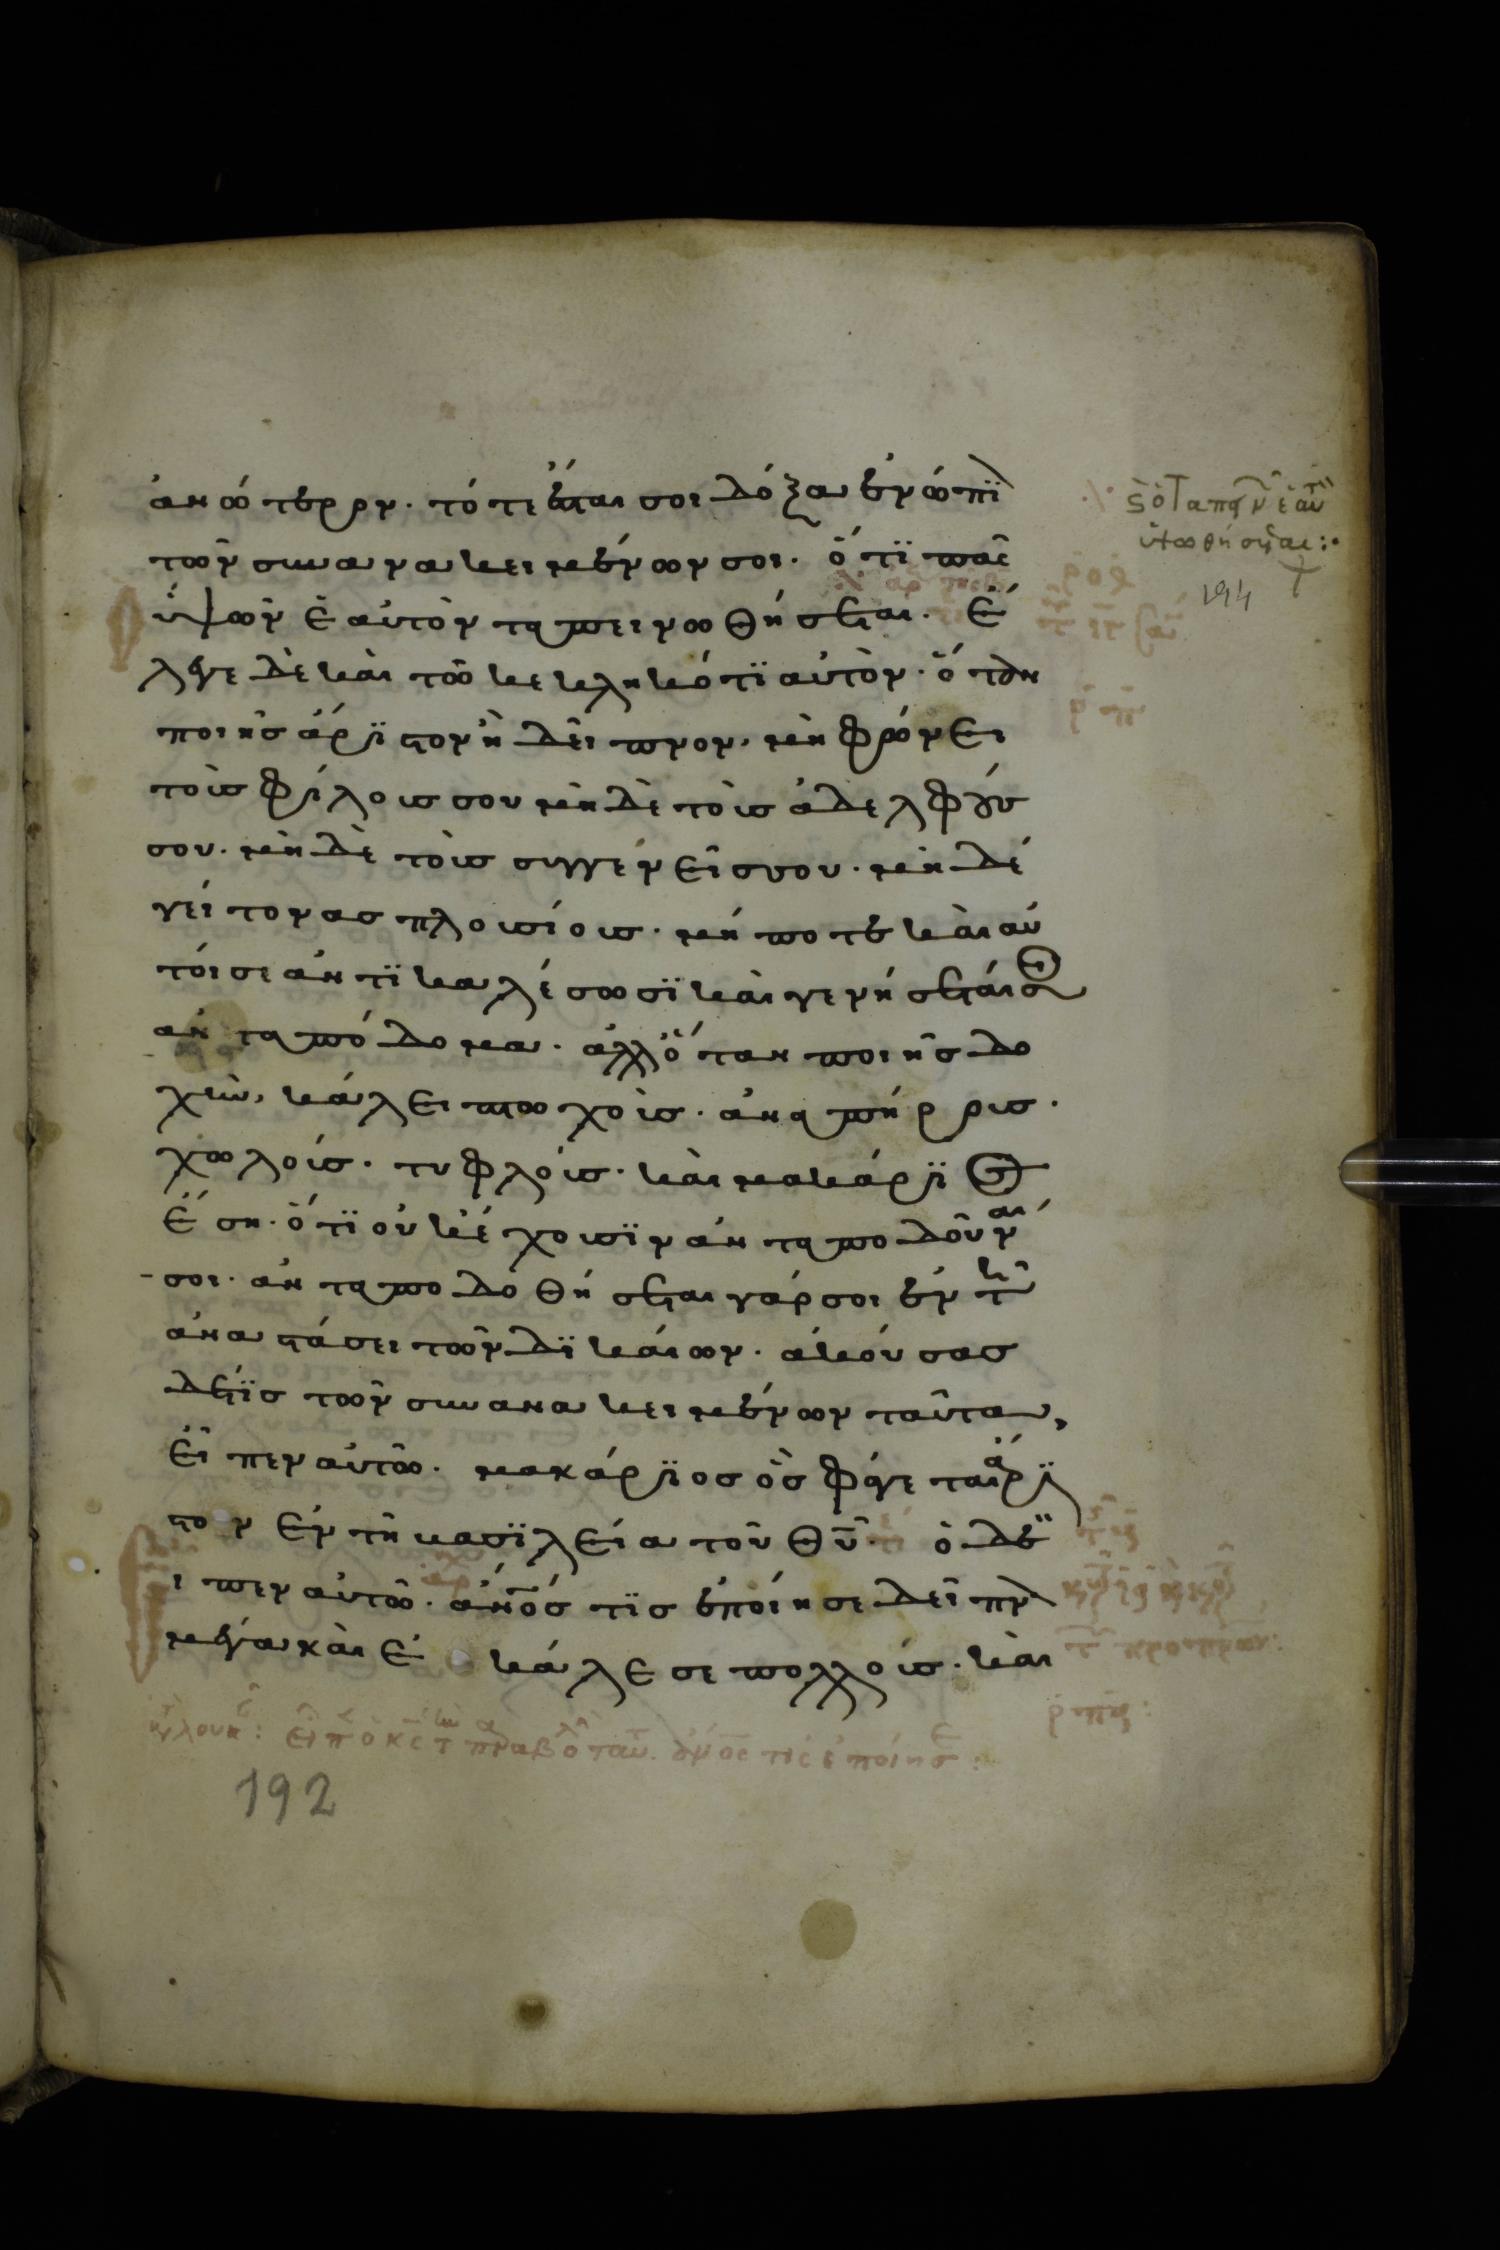 ἀνώτερον. τότε ἔσται σοι δόξα ἐνώπϊ
τῶν συνανακειμένων σοι. ὅτϊ πᾶς
ὑψῶν ἑαυτὸν ταπεινωθήσεται. ἔ
λεγε δὲ καὶ τῶ κεκληκότϊ αὐτὸν. ὅταν
ποιῆς ἄρϊστον ἢ δεῖπνον, μὴ φώνει
τοὺς φίλους σου μὴδὲ τοὺς ἀδελφούς
σου. μὴδὲ τοὺς συγγενεῖς σου. μὴδὲ
γείτονας πλουσίους. μήποτε καὶ αὐ
τοί σε ἀντϊκαλέσωσϊ καὶ γενήσεταί σοι
ἀνταπόδομα. ἀλλ ὅταν ποιῆς δο
χὴν, κάλει πτωχοὺς. ἀναπήρους.
χωλούς. τυφλούς. καὶ μακάρϊος
ἔση. ὅτϊ οὐκ ἔχουσϊν ἀνταποδοῦναί
σοι. ἀνταποδοθήσεται γάρ σοι ἐν τῆ
ἀναστάσει τῶν δϊκαίων. ἀκούσας
δέ τϊς τῶν συνανακειμένων ταῦτα,
εἶπεν αὐτῶ. μακάρϊος ὃς φάγεται ἄρϊ
στον ἐν τῆ βασϊλεία τοῦ θῦ. ὁ δὲ
εἶπεν αὐτῶ. ἄνος τϊς ἐποίησε δεῖπν
μέγα καὶ ἐκάλεσε πολλούς. καὶ
194
192